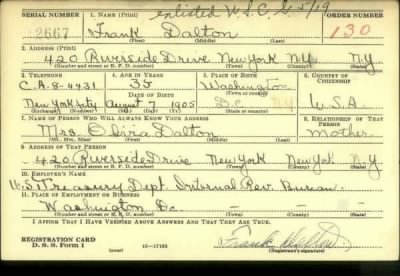 SERIAL NUMBER 1. NAME (Print) enlisted ORDER NUMBER
2667 Frank Dalton 130
(First) (Middle) (Last)
2. ADDRESS (Print)
420 Riverside Drive New York NY NY
(Number and street or R. F. D. number) (Town) (County) (State)
3. TELEPHONE 4. AGE IN YEARS 5. PLACE OF BIRTH 6. COUNTRY OF CITIZENSHIP
C.A.8-4431 35 Washington
DATE OF BIRTH (Town or county)
New York City August 7 1905 D.C. U.S.A.
(Exchange) (Number) (Mo.) (Day) (Yr.) (State or country)
7. NAME OF PERSON WHO WILL ALWAYS KNOW YOUR ADDRESS 8. RELATIONSHIP OF THAT PERSON
Mrs. Dalton Mother
(Mr., Mrs., Miss) (First) (Middle) (Last)
9. ADDRESS OF THAT PERSON
420 Riverside Drive New York New York N.Y
(Number and street or R. F. D. number) (Town) (County) (State)
10. EMPLOYER'S NAME
U.S. Treasury Dept. Internal Rev. Bureau.
11. PLACE OF EMPLOYMENT OR BUSINESS
Washington D.c.
(Number and street or R. F. D. number) (Town) (County) (State)
I AFFIRM THAT I HAVE VERIFIED ABOVE ANSWERS AND THAT THEY ARE TRUE.
REGISTRATION CARD
D. S. S. Form 1 (over) 16—17105 Frank Dalton
(Registrant's signature)